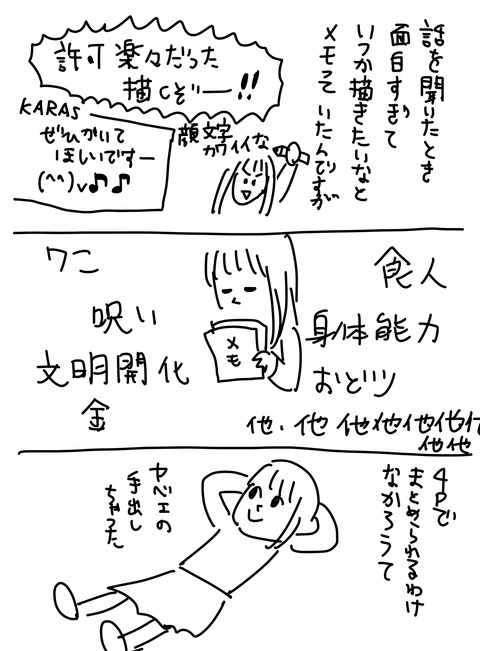 話を聞いたとき
面白すぎて
いつか描きたいなと
メモって いたんですが
許可 楽々だった
描くぞー!!
KARAS
ぜひかいて
ほしいですー
(^^)v♫♪
顔文字
カワイイな
食人
身体能力
おどり
他、他 他他他他他
他他
ワニ
呪い
文明開化
金
メモ
4Pで
まとめられるわけ
なかろうて
ヤベェの
手出し
ちゃった